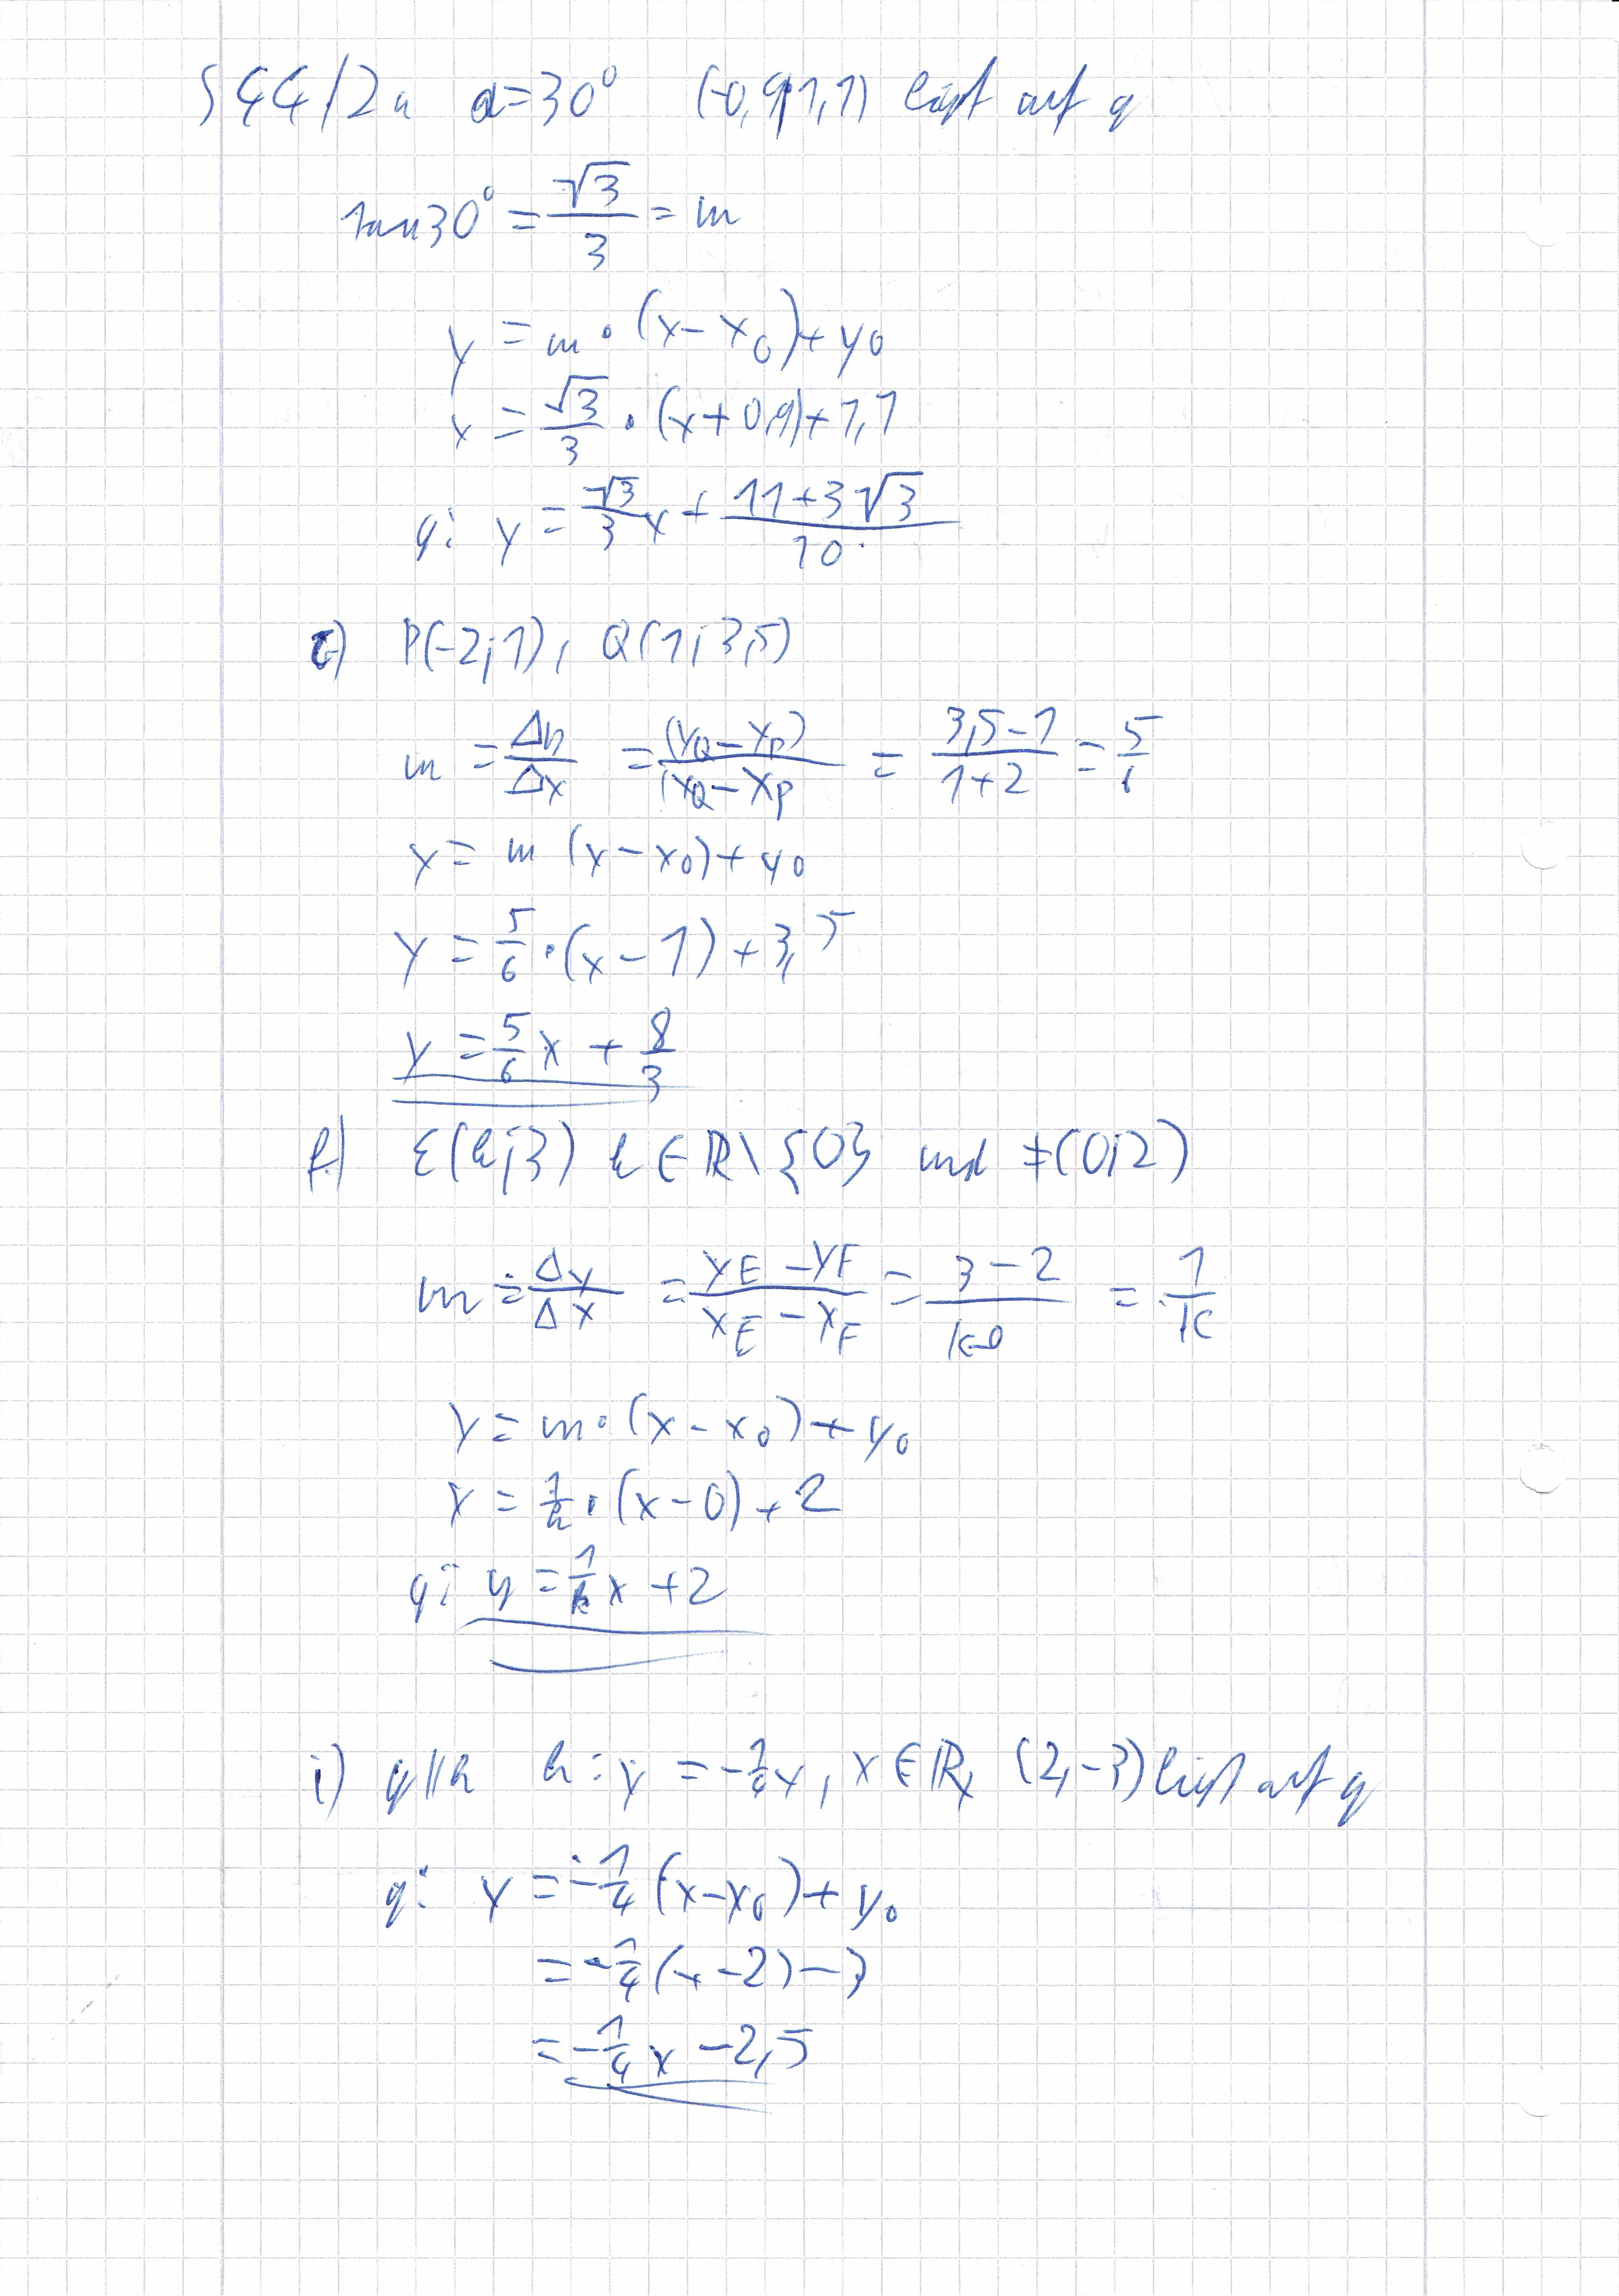 S 44/2a α=30° (-0,9|1,1) liegt auf g
tan30° = √3/3 = m
y = m · (x-x₀) + y₀
y = √3/3 · (x+0,9)+1,1
g: y = √3/3 x + (11+3√3)/10
c) P(-2;1), Q(1;3,5)
m = Δy/Δx = (yQ-yP)/(xQ-xP) = (3,5-1)/(1+2) = 5/6
y = m (x-x₀)+y₀
y = 5/6 · (x-1) + 3,5
y = 5/6 x + 8/3
f) E(k;3) k∈ℝ\{0} und F(0;2)
m = Δy/Δx = (yE-yF)/(xE-xF) = (3-2)/(k-0) = 1/k
y = m · (x-x₀) + y₀
y = 1/k · (x-0) + 2
g: y = 1/k x + 2
i) g||h h: y = -1/4 x, x∈ℝ, (2,-3) liegt auf g
g: y = -1/4 (x-x₀) + y₀
= -1/4 (x-2) - 3
= -1/4 x - 2,5